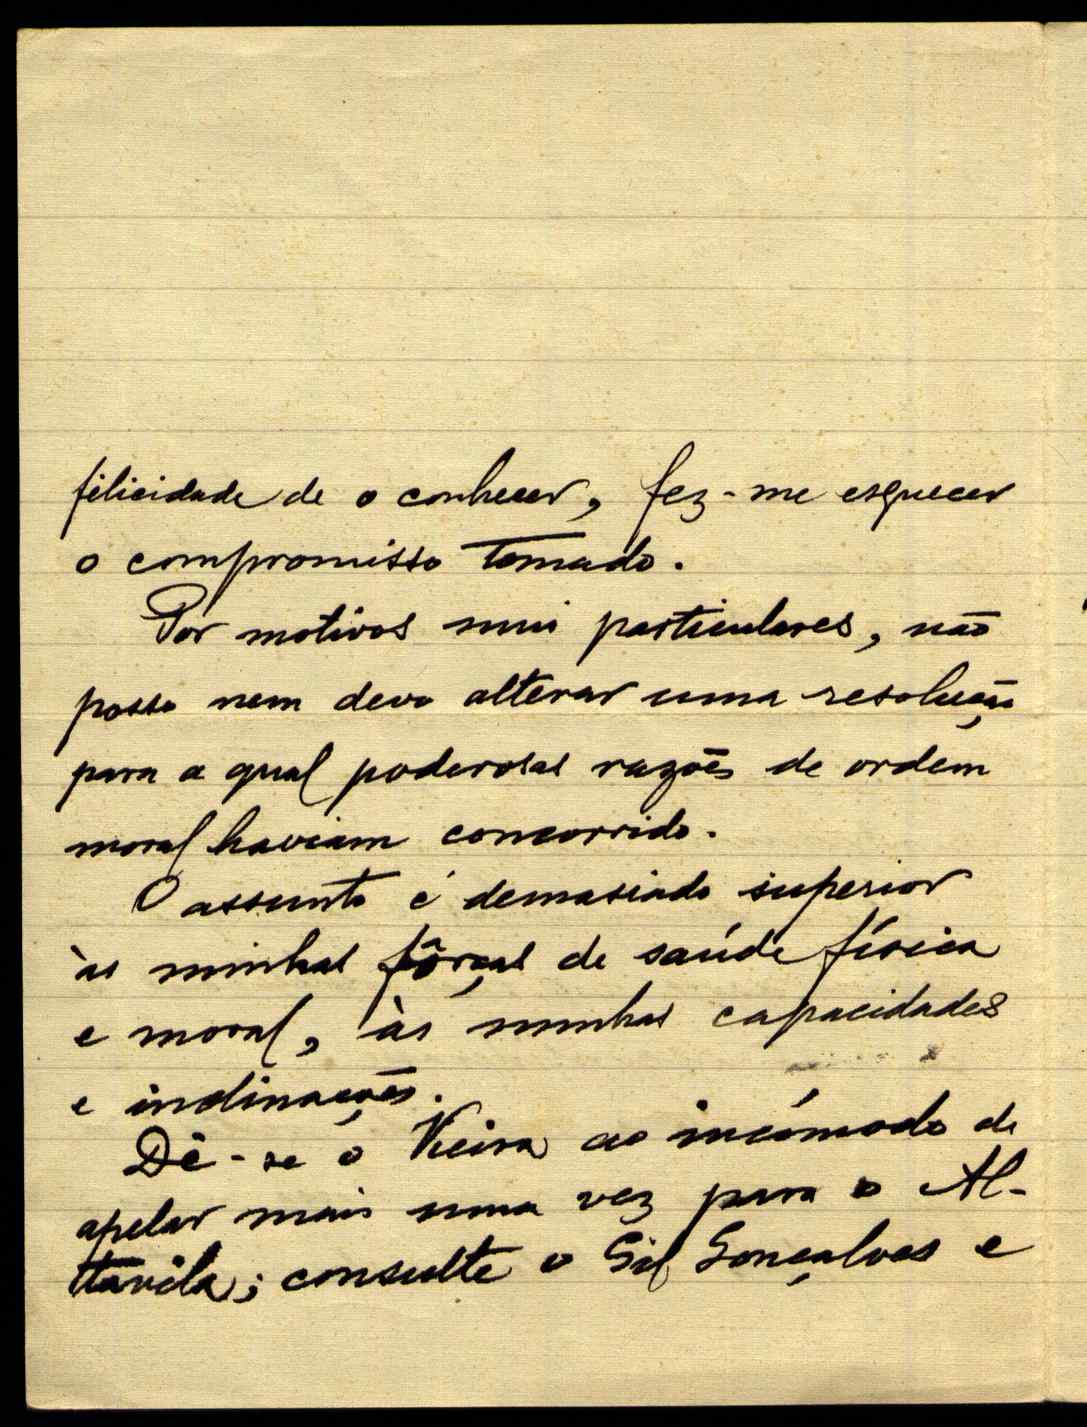 felicidade de o conhecer, fez-me esquecer
o compromisso tomado.
Por motivos mui particulares, não
posso nem devo alterar uma resolução
para a qual poderosas razões de ordem
moral haviam concorrido.
O assunto é demasiado superior
às minhas fôrças de saúde física
e moral, às minhas capacidades
e inclinações.
Dê-se o Vieira ao incómodo de
apelar mais uma vez para o Al-
távila; consulte o Gil Gonçalves e